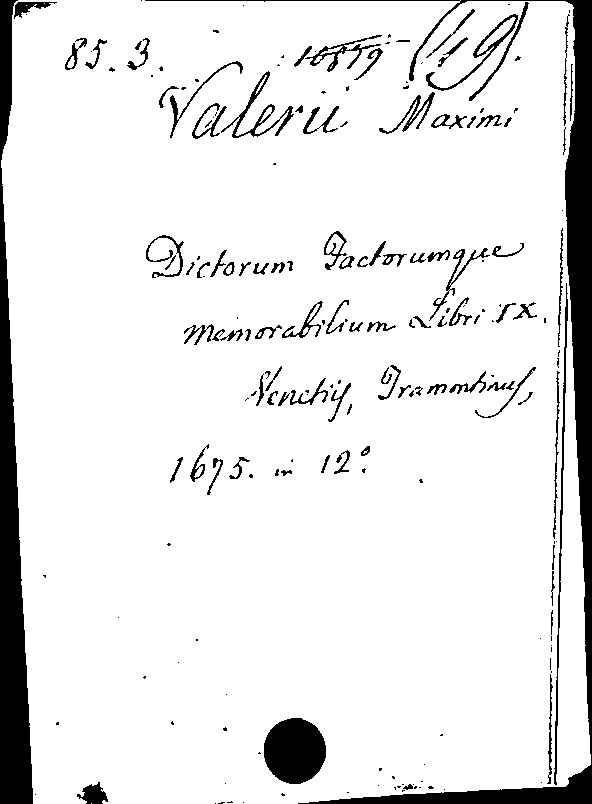 85. 3. 10879 (19).
Valerii Maximi
Dictorum Factorumque
memorabilium Libri IX.
Venetiis, Tramontinus,
1675. in 12º.